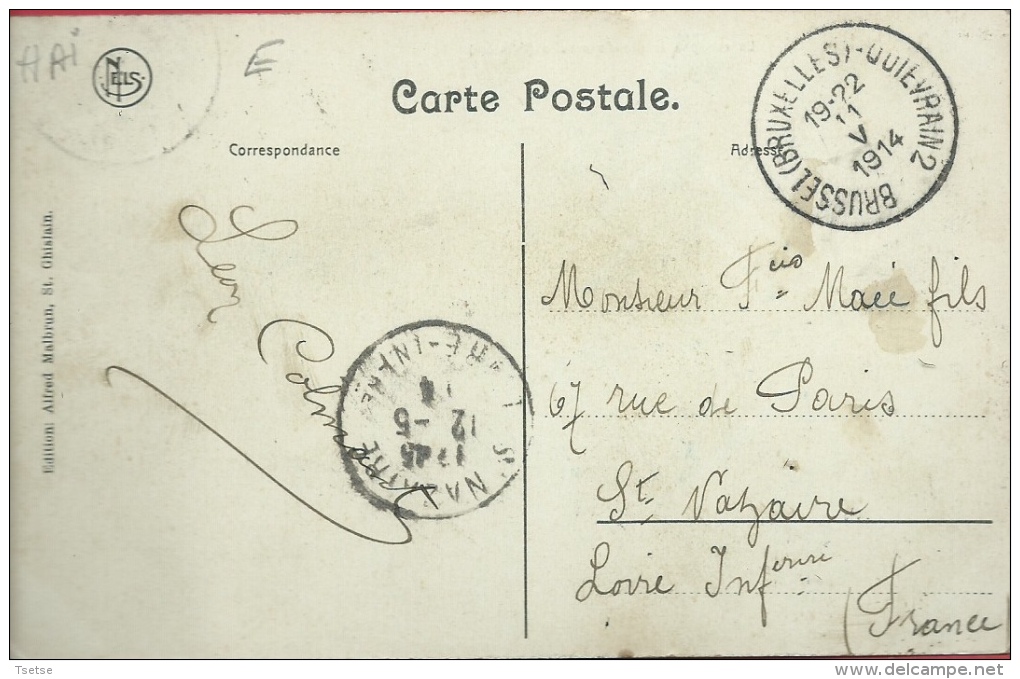 HAI
NELS
E
Carte Postale.
Correspondance
Adresse
BRUSSEL (BRUXELLES)-QUIEVRAIN 2
19-22
11
V
1914
Edition: Alfred Malbrun, St. Ghislain.
Leon
Monsieur Fcis Macé fils
67 rue de Paris
St. Nazaire
Loire Inférieure
(France
ST NAZAIRE
12 -5
14
Tsetse
www.delcampe.net